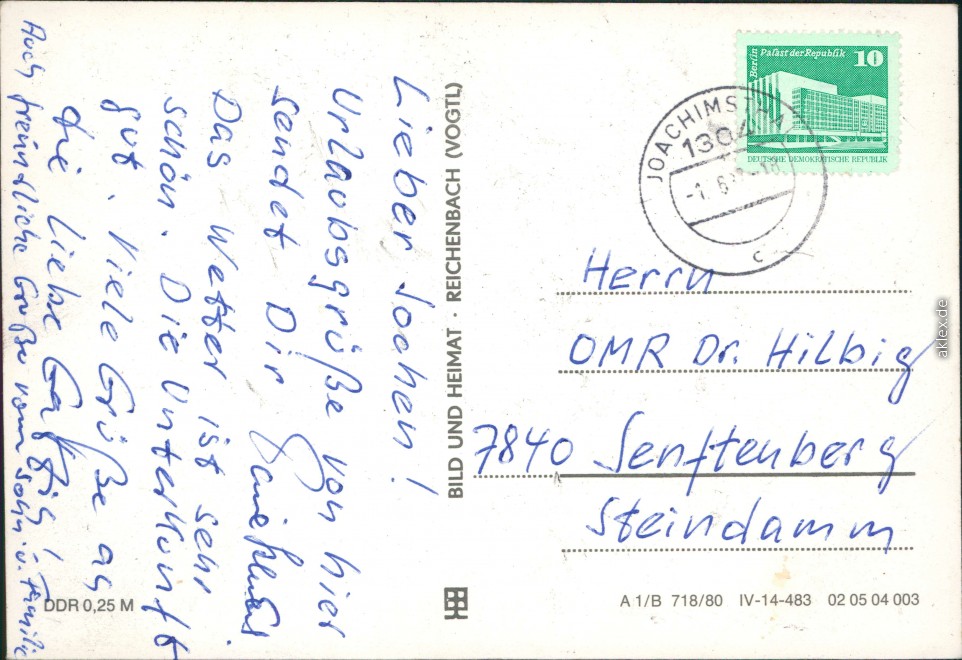 Lieber Jochen!
Urlaubsgrüße von hier
sendet Dir
Das Wetter ist sehr
schön. Die Unterkunft
gut. Viele Grüße an
die liebe Gattin!
Auch freundliche Grüße vom Sohn u. Familie
BILD UND HEIMAT · REICHENBACH (VOGTL)
DDR 0,25 M
Berlin Palast der Republik 10
DEUTSCHE DEMOKRATISCHE REPUBLIK
JOACHIMSTHA
1304
-1. 6.
c
Herrn
OMR Dr. Hilbig
7840 Senftenberg
Steindamm
A 1/B 718/80 IV-14-483 02 05 04 003
aklex.de